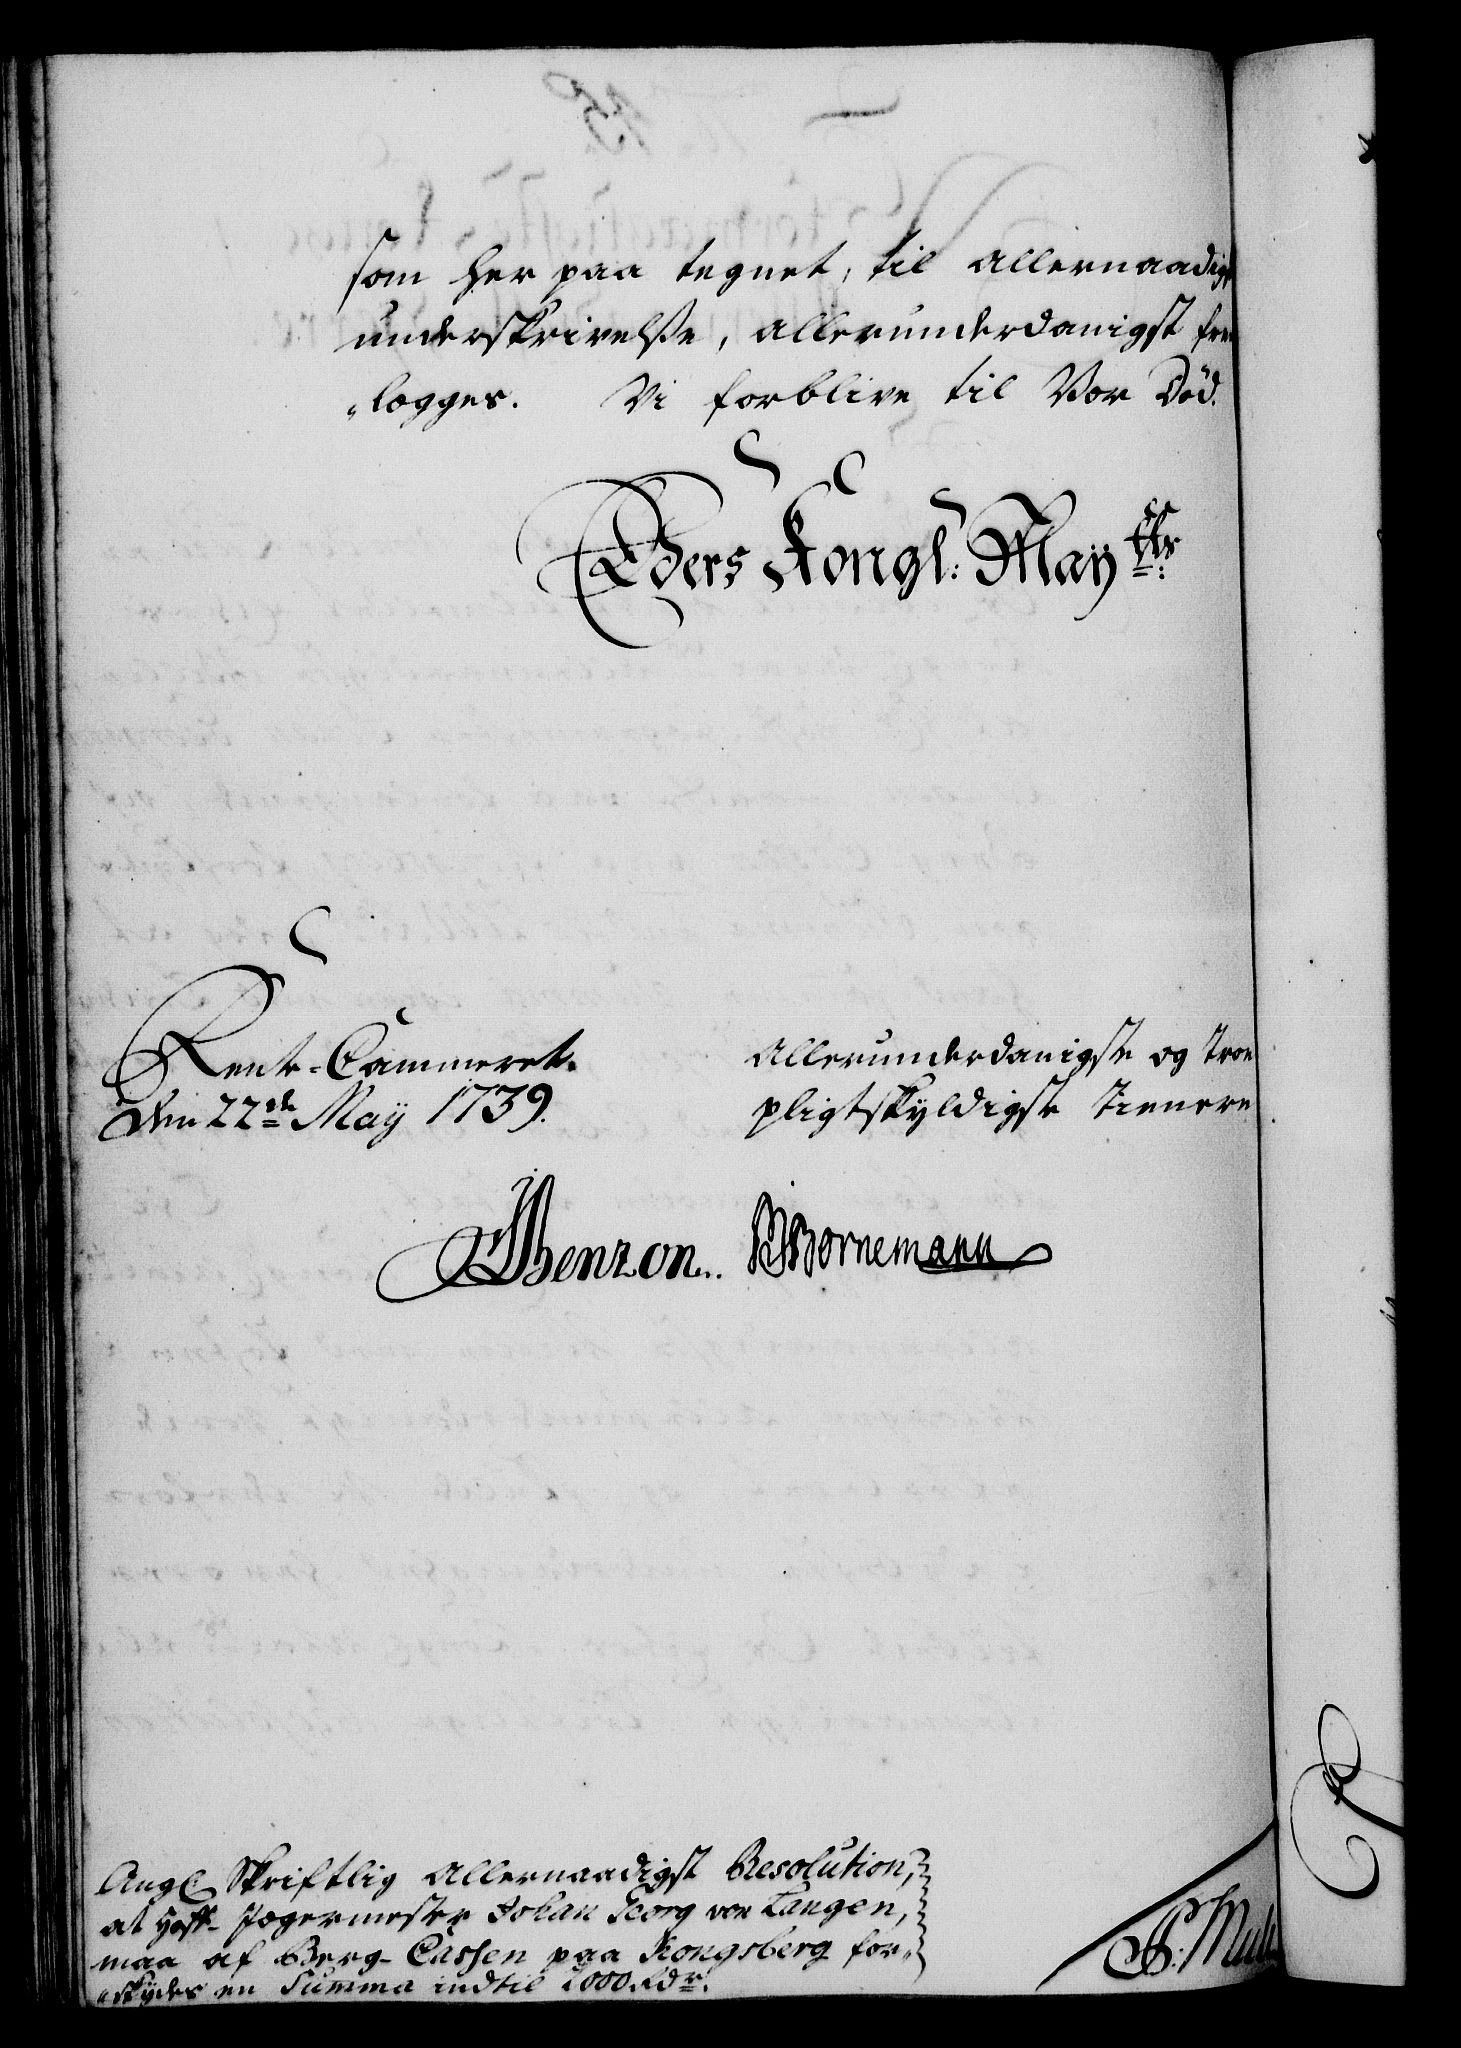 som her paa tegnet, til allernaadigst
underskrivelse, allerunderdanigst frem
„lægges. Vi forblive til Vor Død.
Eders Kongl: Mayttr:
Rente-Cammeret.
Den 22de May 1739.
Allerunderdanigste og troe
pligtskyldigste tienere
Benzon.
Bornemann
Angl Skriftlig Allernaadigst Resolution,
at Hoff-Jægermester Johan Georg von Langen,
maa af Berg-Cassen paa Kongsberg for„
„skydes en Summa indtil 2000 Rdr.